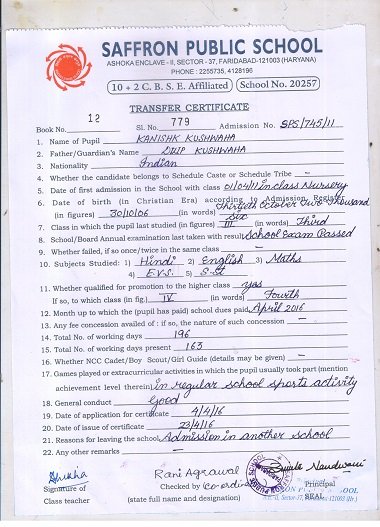 SAFFRON PUBLIC SCHOOL
ASHOKA ENCLAVE - II, SECTOR - 37, FARIDABAD-121003 (HARYANA)
PHONE : 2255735, 4128196
10 + 2 C. B. S. E. Affiliated School No. 20257
TRANSFER CERTIFICATE
Book No. 12 Sl. No. 779 Admission No. SPS/745/11
1. Name of Pupil KANISHK KUSHWAHA
2. Father/Guardian's Name DILIP KUSHWAHA
3. Nationality Indian
4. Whether the candidate belongs to Schedule Caste or Schedule Tribe –
5. Date of first admission in the School with class 01/04/11 in class Nursery
6. Date of birth (in Christian Era) according to Admission Register
(in figures) 30/10/06 (in words) Thirtieth October Two Thousand Six
7. Class in which the pupil last studied (in figures) III (in words) Third
8. School/Board Annual examination last taken with result School Exam Passed
9. Whether failed, if so once/twice in the same class –
10. Subjects Studied: 1) Hindi 2) English 3) Maths
4) E.V.S. 5) S.St
11. Whether qualified for promotion to the higher class yes
If so, to which class (in fig.) IV (in words) Fourth
12. Month up to which the (pupil has paid) school dues paid April 2016
13. Any fee concession availed of : if so, the nature of such concession –
14. Total No. of working days 196
15. Total No. of working days present 163
16. Whether NCC Cadet/Boy Scout/Girl Guide (details may be given) –
17. Games played or extracurricular activities in which the pupil usually took part (mention
achievement level therein) in regular school sports activity
18. General conduct Good
19. Date of application for certificate 4/4/16
20. Date of issue of certificate 23/4/16
21. Reasons for leaving the school Admission in another school
22. Any other remarks –
Rani Agrawal
Signature of Checked by Co-ordi Principal
Class teacher (state full name and designation) SEAL